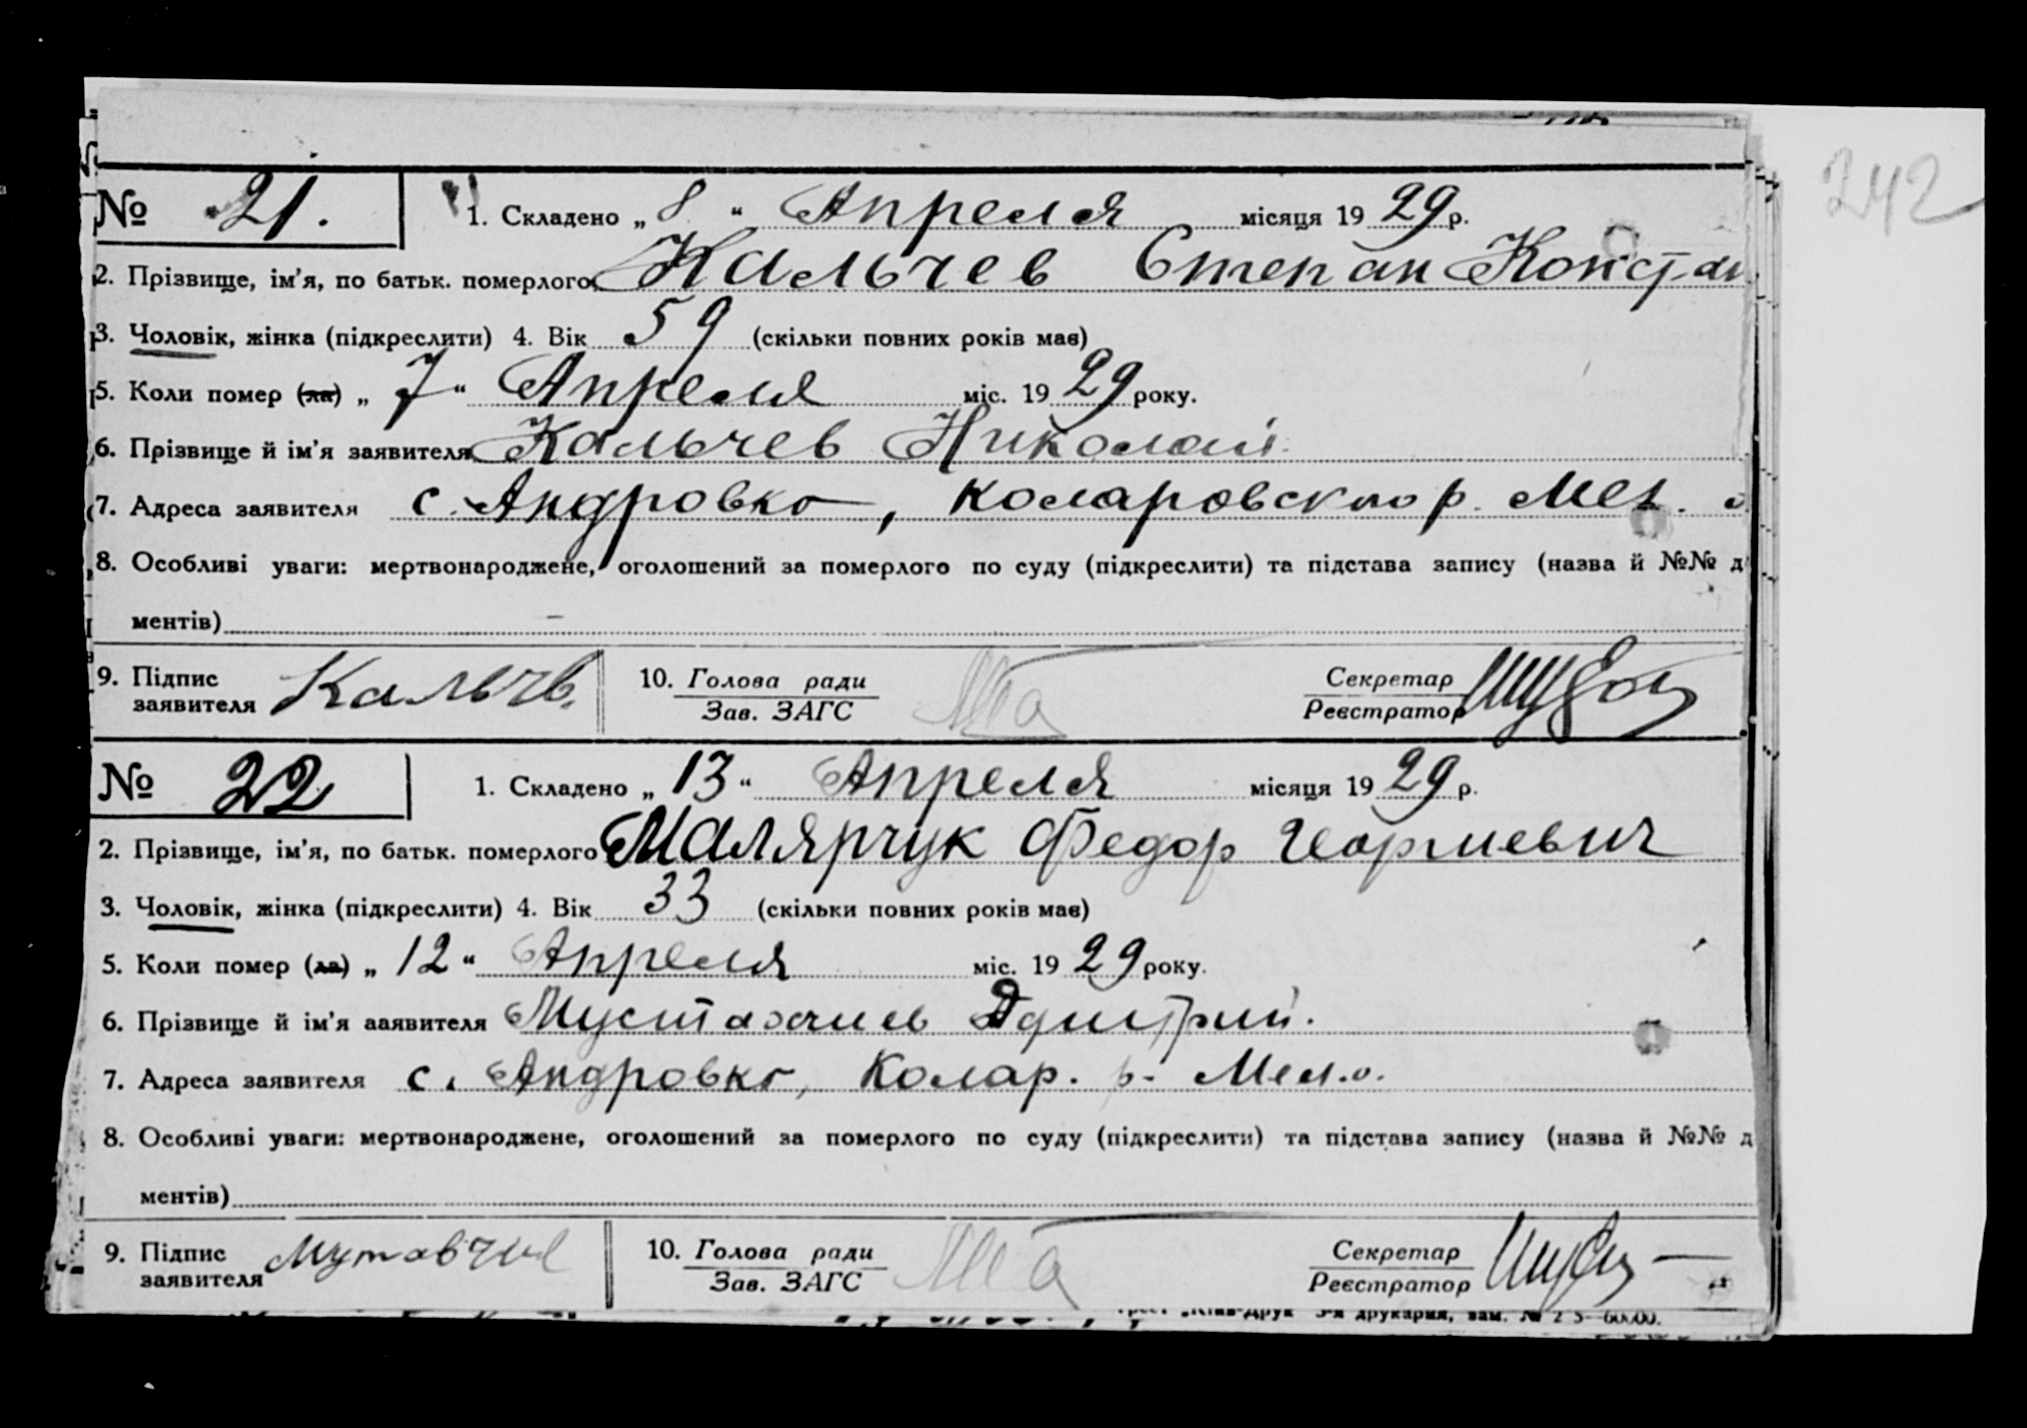 242
№ 21. 1. Складено „ 8 “ Апреля місяця 1929 р.
2. Прізвище, ім'я, по батьк. померлого Кальчев Степан Констан
3. Чоловік, жінка (підкреслити) 4. Вік 59 (скільки повних років має)
5. Коли помер (ла) „ 7 “ Апреля міс. 1929 року.
6. Прізвище й ім'я заявителя Кальчев Николай
7. Адреса заявителя с. Андровка, Коларовского р. Мел. о
8. Особливі уваги: мертвонароджене, оголошений за померлого по суду (підкреслити) та підстава запису (назва й №№ д
ментів) –
9. Підпис заявителя Кальчв. 10. Голова ради Секретар
Зав. ЗАГС Реєстратор
№ 22 1. Складено „ 13 “ Апреля місяця 1929 р.
2. Прізвище, ім'я, по батьк. померлого Малярчук Федор Георгиевич
3. Чоловік, жінка (підкреслити) 4. Вік 33 (скільки повних років має)
5. Коли помер (ла) „ 12 “ Апреля міс. 1929 року.
6. Прізвище й ім'я заявителя Дмитрий.
7. Адреса заявителя с. Андровка, Колар. р. Мел. о.
8. Особливі уваги: мертвонароджене, оголошений за померлого по суду (підкреслити) та підстава запису (назва й №№ д
ментів)
9. Підпис заявителя 10. Голова ради Секретар
Зав. ЗАГС Реєстратор
друкарня, зам. №